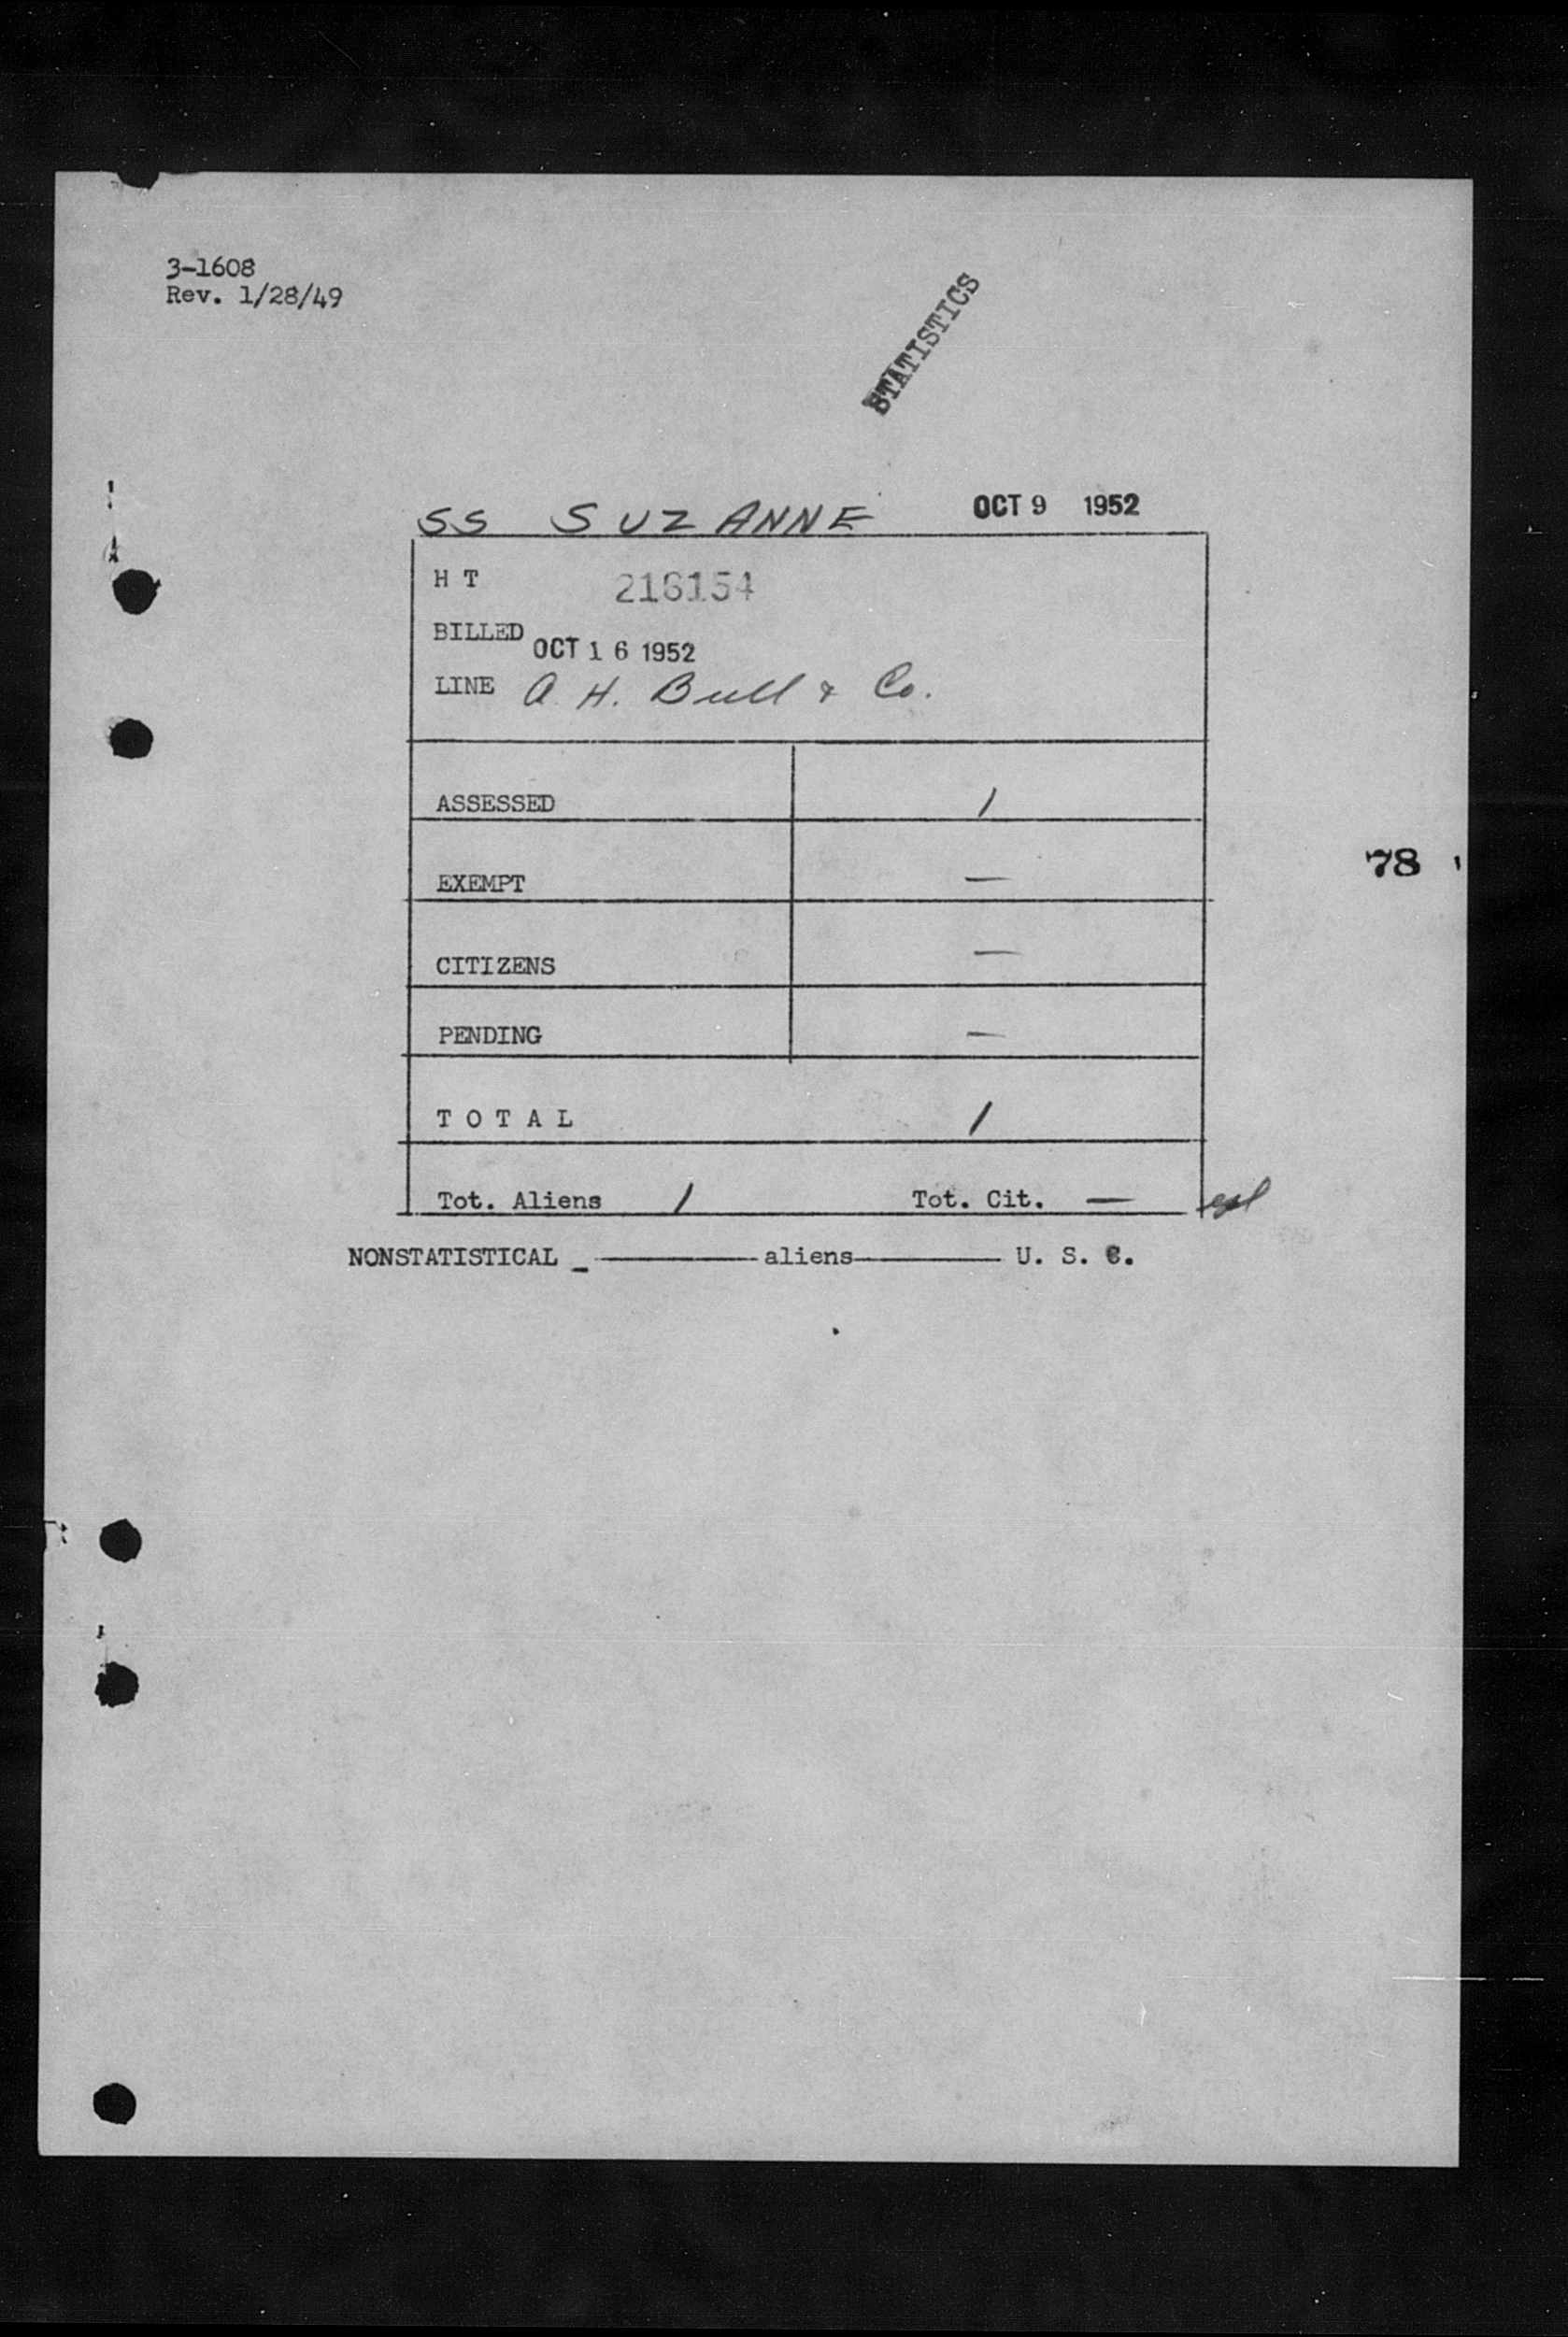 3-1608
Rev. 1/28/49
STATISTICS
SS SUZANNE OCT 9 1952
H T 216154
BILLED OCT 16 1952
LINE A. H. Bull & Co.
ASSESSED 1
78
EXEMPT —
CITIZENS —
PENDING —
T O T A L 1
Tot. Aliens 1 Tot. Cit. —
NONSTATISTICAL _ ———— aliens ———— U. S. C.